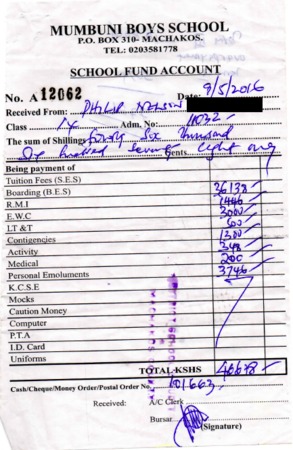 MUMBUNI BOYS SCHOOL
P.O. BOX 310- MACHAKOS.
TEL: 0203581778
SCHOOL FUND ACCOUNT
No. A 12062 Date: 9/5/2016
Received From: PHILIP
Class Adm. No: 11032
The sum of Shillings Fourty Six thousand
Six hundred seventy eight only
cents
Being payment of
Tuition Fees (S.E.S)
Boarding (B.E.S) 36138
R.M.I 1446
E.W.C 3000
LT &T 60
Contigencies 1300
Activity 348
Medical 200
Personal Emoluments 3746
K.C.S.E
Mocks
Caution Money
Computer
P.T.A
I.D. Card
Uniforms
TOTAL KSHS 46678
Cash/Cheque/Money Order/Postal Order No. 101663
Received: A/C Clerk
Bursar
(Signature)